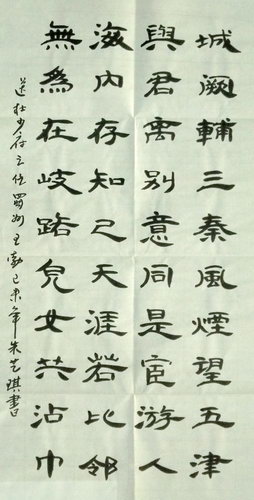 城阙輔三秦風煙望五津
與君离别意同是宦游人
海内存知己天涯若比邻
無為在岐路兒女共沾巾
送杜少府之任蜀州王勃己未年朱芝琪書